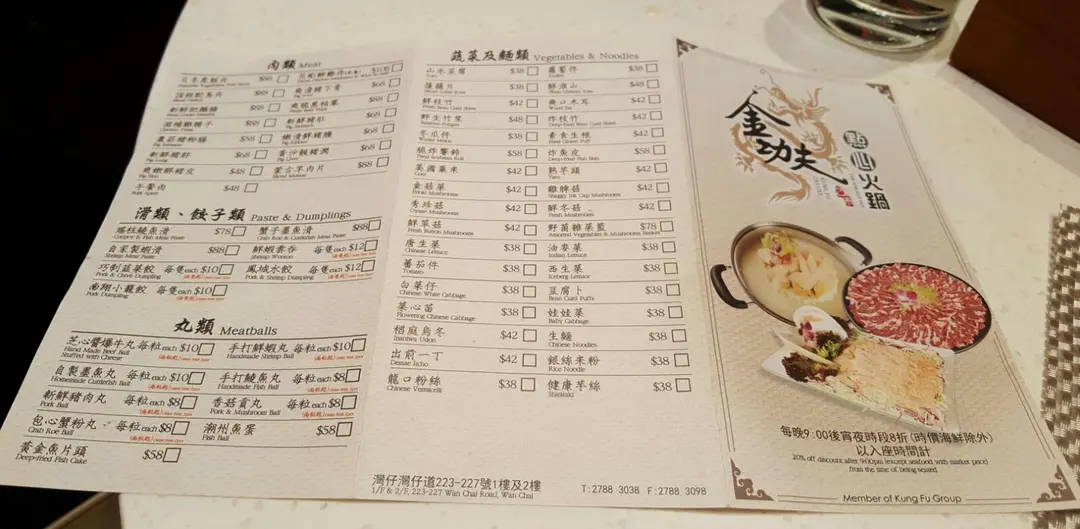 肉類 Meat
$88
$68
$88
$68
$88
新鮮肥鵝腸 $88
新鮮豬肚 $68
$58
$68
新鮮豬膶 $68
爽嫩鮮豬皮 $48
蒙古羊肉片 $88
午餐肉 $48
滑類、餃子類 Paste & Dumplings
瑤柱鯪魚滑 $78
蟹子墨魚滑 $88
自家製蝦滑 $88
Shrimp Meat Paste
鮮蝦雲吞 每隻each $12
Shrimp Wonton
巧制韮菜餃 每隻each $10
Pork & Chive Dumpling
鳳城水餃 每隻each $12
Pork & Shrimp Dumpling
南翔小籠餃 每隻each $10
Pork Dumpling
丸類 Meatballs
芝心醬爆牛丸 每粒each $10
Hand Made Beef Ball
Stuffed with Cheese
手打鮮蝦丸 每粒each $10
Handmade Shrimp Ball
自製墨魚丸 每粒each $10
Homemade Cuttlefish Ball
手打鯪魚丸 每粒each $8
Handmade Fish Ball
新鮮豬肉丸 每粒each $8
Pork Ball
香菇貢丸 每粒each $8
Pork & Mushroom Ball
包心蟹粉丸 每粒each $8
Crab Roe Ball
潮州魚蛋 $58
Fish Ball
黃金魚片頭 $58
Deep-fried Fish Cake
蔬菜及麵類 Vegetables & Noodles
山水豆腐 $38
Tofu
蘿蔔件 $38
蓮藕片 $38
Sliced Lotus Root
鮮淮山 $48
鮮枝竹 $42
爽口木耳 $42
野生竹笙 $48
Bamboo Fungus
炸枝竹 $42
冬瓜件 $38
Winter Melon
素食生根 $42
脆炸響鈴 $58
Fried Soybean Roll
炸魚皮 $58
Deep-fried Fish Skin
美國粟米 $42
Corn
熟芋頭 $42
Taro
金菇菜 $42
Enoki Mushrooms
雞脾菇 $42
Shaggy Ink Cap Mushrooms
秀珍菇 $42
Oyster Mushrooms
鮮冬菇 $42
Fresh Mushrooms
鮮草菇 $42
Fresh Button Mushrooms
野菌雜菜籃 $78
Assorted Vegetables & Mushrooms Basket
唐生菜 $38
Chinese Lettuce
油麥菜 $38
Indian Lettuce
蕃茄件 $38
Tomato
西生菜 $38
Iceberg Lettuce
白菜仔 $38
Chinese White Cabbage
豆腐卜 $38
Bean Curd Puffs
菜心苗 $38
Flowering Chinese Cabbage
娃娃菜 $38
Baby Cabbage
稻庭烏冬 $42
Inaniwa Udon
生麵 $38
Chinese Noodles
出前一丁 $42
Demae Iacho
銀絲米粉 $38
Rice Noodle
龍口粉絲 $38
Chinese Vermicelli
健康芋絲 $38
Shirataki
灣仔灣仔道223-227號1樓及2樓
1/F & 2/F, 223-227 Wan Chai Road, Wan Chai
T:2788 3038 F:2788 3098
金功夫
點心火鍋
每晚9:00後宵夜時段8折(時價海鮮除外)
以入座時間計
20% off discount after 9:00pm (except seafood with market price)
from the time of being seated.
Member of Kung Fu Group